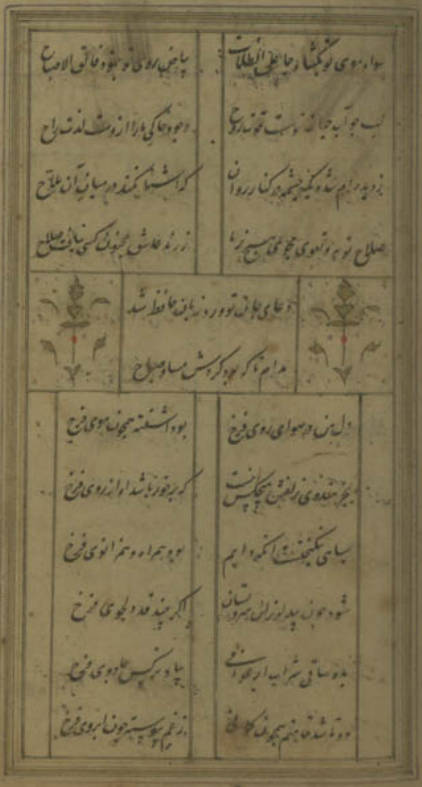 سواد موی تو بگشاد جاعل الظلمات
بیاض روی تو بنمود فالق الاصباح
لب چو آب حیات تو هست قوت روح
وجود خاکی ما را ازوست لذت راح
ز دیده‌ام شده یک چشمه در کنار روان
که آشنا نکند در میان آن ملاح
صلاح توبه و تقوی مجوی هیچ ز ما
ز رند عاشق مجنون کسی نیافت صلاح
دعای جان تو ورد زبان حافظ شد
مدام تا که بود گردش مسا و صباح
دل من در هوای روی فرخ
بود آشفته همچون موی فرخ
بجز هندوی زلفش هیچکس نیست
که برخور باشد او از روی فرخ
سیاهی نیکبختست آنکه دایم
بود همراه و همزانوی فرخ
شود چون بید لرزان سرو بستان
اگر بیند قد دلجوی فرخ
بده ساقی شراب ارغوانی
بیاد نرگس جادوی فرخ
دوتا شد قامتم همچون کمانی
ز غم پیوسته چون ابروی فرخ